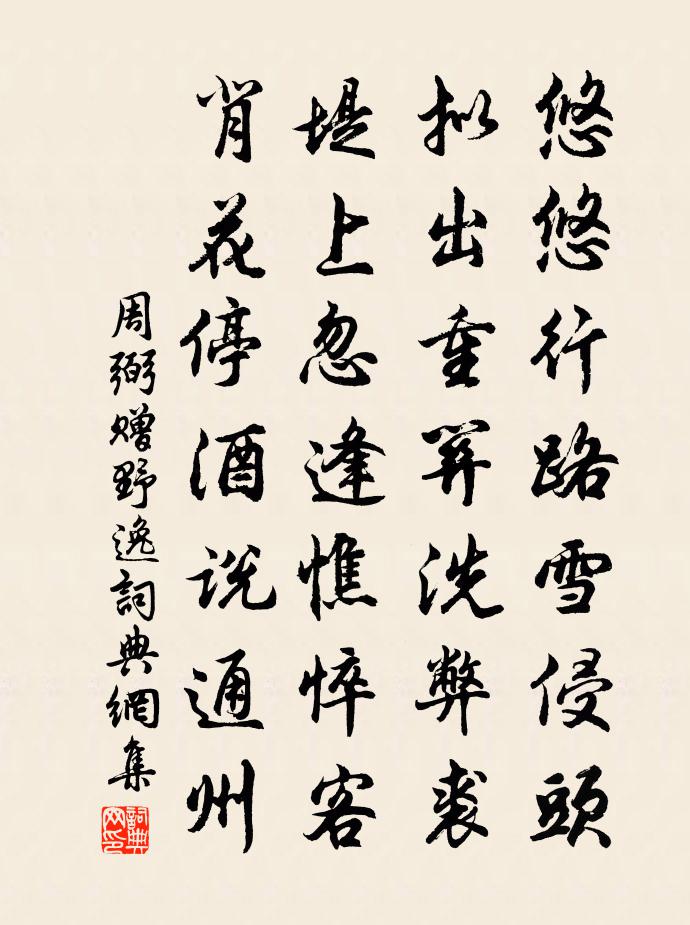 悠悠行路雪侵頭
拟出重關洗弊裘
堤上忽逢憔悴客
背花停酒说通州
周弼赠野逸詞典網集
詞典网印